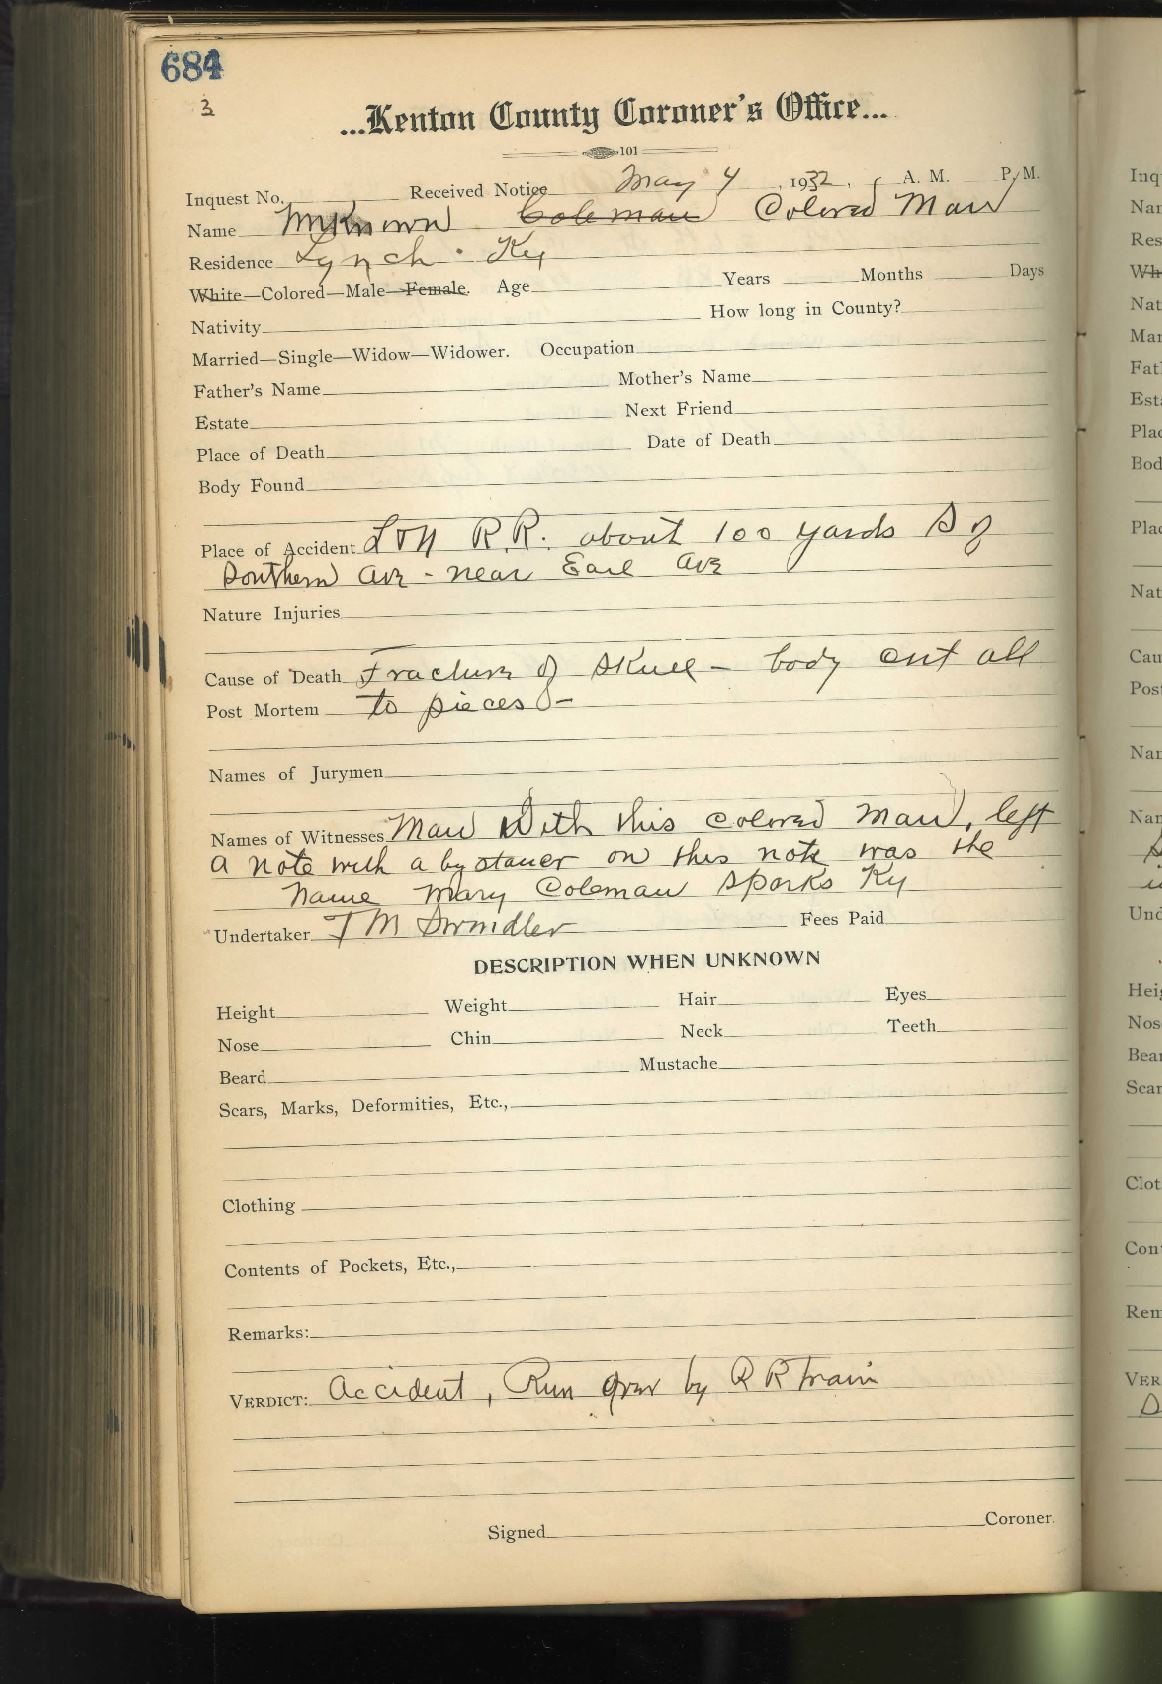 684
3
...Kenton County Coroner's Office...
101
Inquest No. Received Notice May 4, 1932, A. M. P. M.
Name Unknown Coleman Colored Man
Residence Lynch Ky
White—Colored—Male—Female. Age Years Months Days
Nativity How long in County?
Married—Single—Widow—Widower. Occupation
Father's Name Mother's Name
Estate Next Friend
Place of Death Date of Death
Body Found
Place of Accident L&N R.R. about 100 yards S of
Southern Ave - near Earl Ave
Nature Injuries
Cause of Death Fracture of Skull - body cut all
Post Mortem to pieces -
Names of Jurymen
Names of Witnesses Man With this colored man, left
a note with a bystaner on this note was the
name Mary Coleman Sparks Ky
Undertaker T M Swindler Fees Paid
DESCRIPTION WHEN UNKNOWN
Height Weight Hair Eyes
Nose Chin Neck Teeth
Beard Mustache
Scars, Marks, Deformities, Etc.,
Clothing
Contents of Pockets, Etc.,
Remarks:
VERDICT: Accident, Run over by R R train
Signed Coroner.